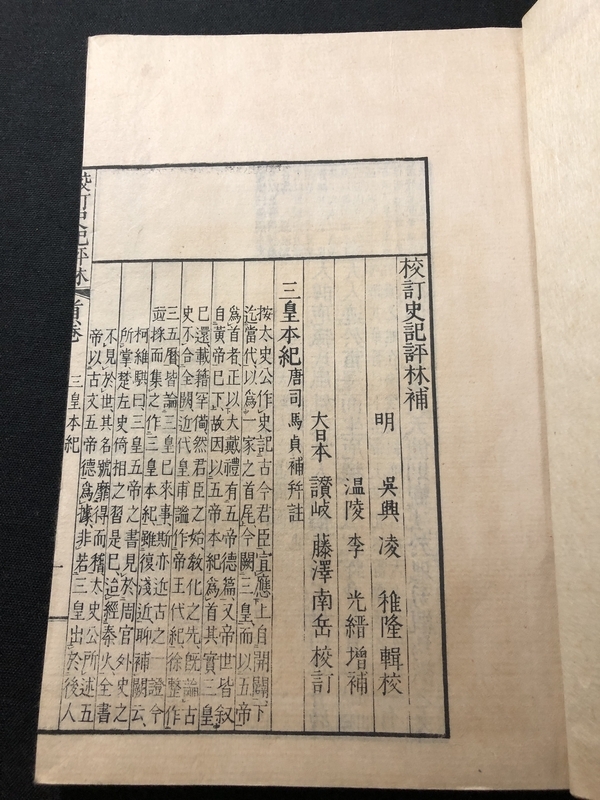 校訂史記評林補
明 吳興 凌 稚隆 輯校
温陵 李 光縉 增補
大日本 讚岐 藤澤 南岳 校訂
三皇本紀 唐司馬貞補并註
按太史公作史記古今君臣宜應上自開闢下
迄當代以爲一家之首尾今闕三皇而以五帝
爲首者正以大戴禮有五帝德篇又帝世皆叙
自黃帝已下故因以五帝本紀爲首其實三皇
已還載籍罕俻然君臣之始敎化之先旣論古
史不合全闕近代皇甫謐作帝王代紀徐整作
三五曆皆論三皇已來事斯亦近古之證今
竝採而集之作三皇本紀雖復淺近聊補闕云
柯維騏曰三皇五帝之書見於周官外史之
所掌楚左史倚相之習是已迨經秦火全書
不見於世其名號靡得而稽太史公所述五
帝以古文五帝德爲據非若三皇出於後人
校訂史記評林 首卷 三皇本紀 一